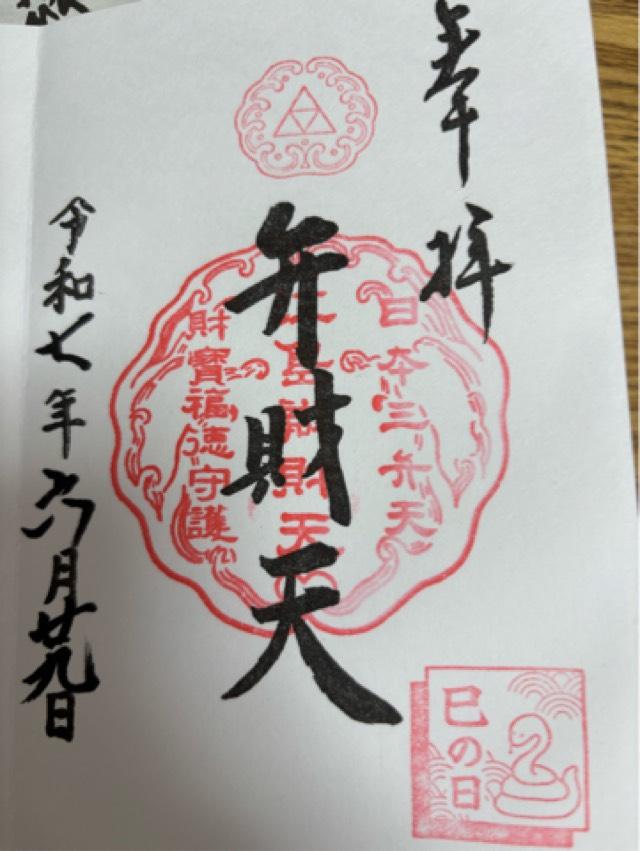 奉拝
日本三弁天
江島辨財天
弁財天
財寶福徳守護
令和七年六月廿九日
巳の日